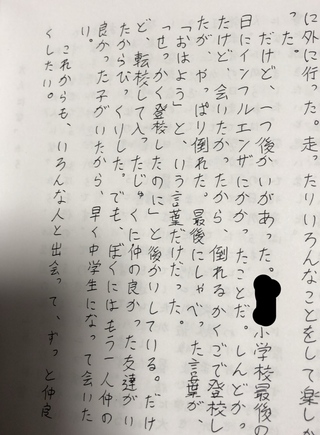 に外に行った。走ったりいろんなことをして楽しか
った。
だけど、一つ後かいがあった。小学校最後の
日にインフルエンザにかかったことだ。しんどかっ
たけど、会いたかったから、倒れるかくごで登校し
たが、やっぱり倒れた。最後にしゃべった言葉が、
「おはよう」と、いう言葉だけだった。
「せっかく登校したのに」と後かいしている。だけ
ど、転校して入ったじゅくに仲の良かった友達がい
たからびっくりした。でも、ぼくにはもう一人仲の
良かった子がいたから、早く中学生になって会いた
い。
これからも、いろんな人と出会って、ずっと仲良
くしたい。